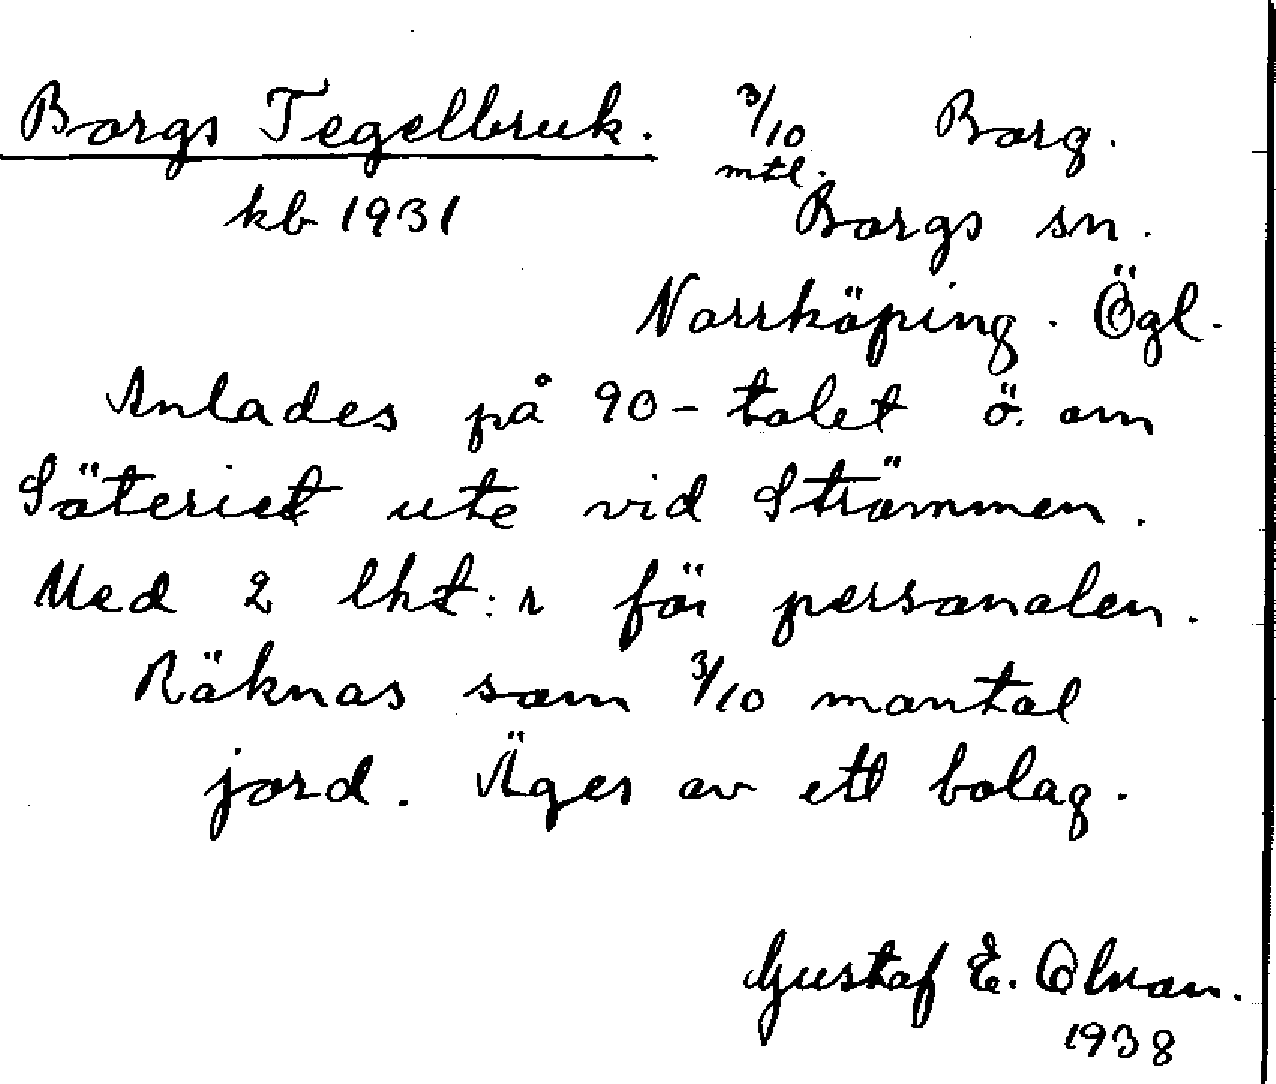 Borgs Tegelbruk. 3/10 mtl. Borg.
kb 1931 Borgs sn.
Norrköping. Ögl.
Anlades på 90-talet ö. om
Säteriet ute vid Strömmen.
Med 2 lht:r för personalen.
Räknas som 3/10 mantal
jord. Äges av ett bolag.
Gustaf E.
1938